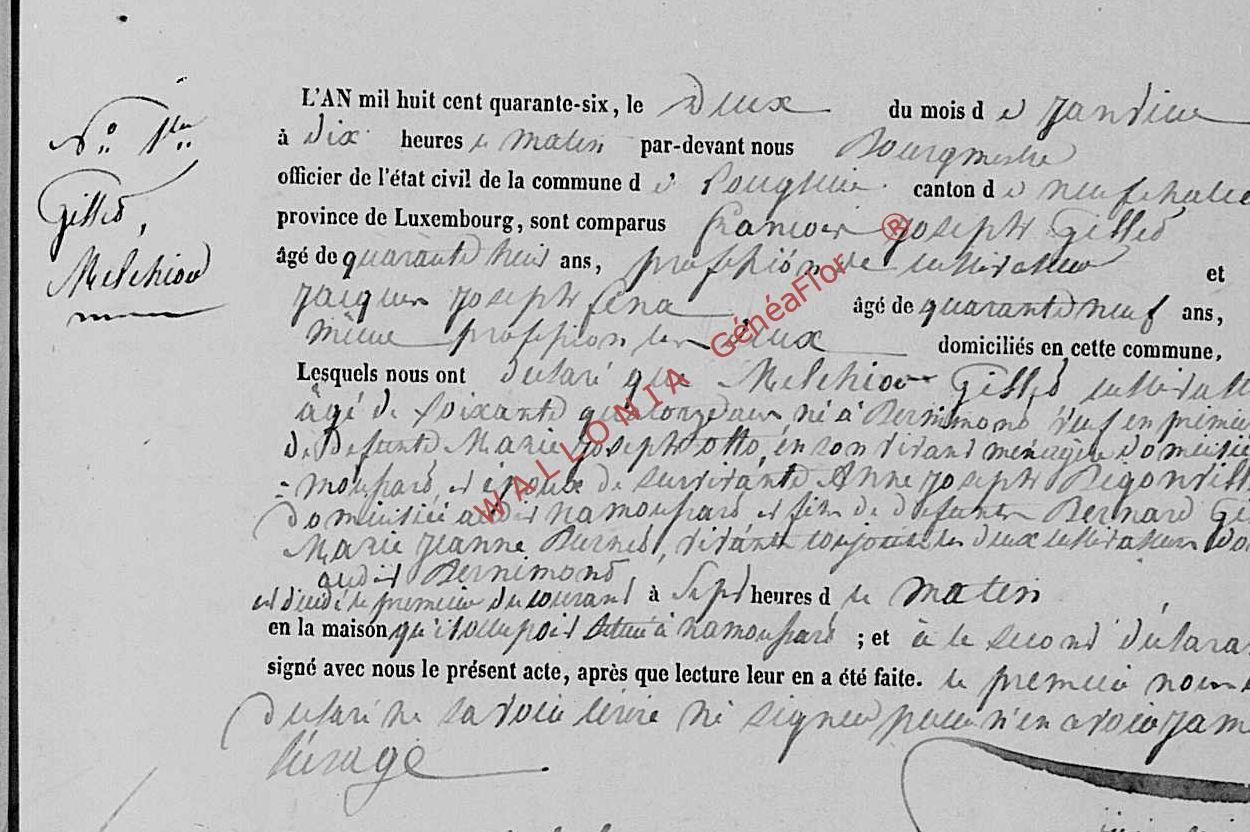 N° 1er
Gilles,
Melchior
L'AN mil huit cent quarante-six, le Deux du mois d e Janvier
à Dix heures de matin par-devant nous Bourgmestre
officier de l'état civil de la commune d e canton d e neufchateau
province de Luxembourg, sont comparus François Joseph Gilles
âgé de quarante huit ans, profession de cultivateur et
Jacques Joseph âgé de quarante neuf ans,
même profession les deux domiciliés en cette commune,
Lesquels nous ont déclaré que Melchior Gilles
âgé de Soixante quatorze ans, né à Bernimond veuf en premier
de Défunte Marie Joseph otto, en son vivant ménagère
namoussart, et époux de survivante Anne Joseph
domiciliée audit namoussart et fils de defunts Bernard
Marie Jeanne vivants toujours les deux cultivateurs
audit Bernimond
est décédé le premier du courant à Sept heures d de matin
en la maison qu'il occupoit située à namoussart ; et à le second
signé avec nous le présent acte, après que lecture leur en a été faite. le premier
Déclaré ne savoir écrire ni signer pour n'en avoir
l'usage
WALLONIA GénéaFlor ®